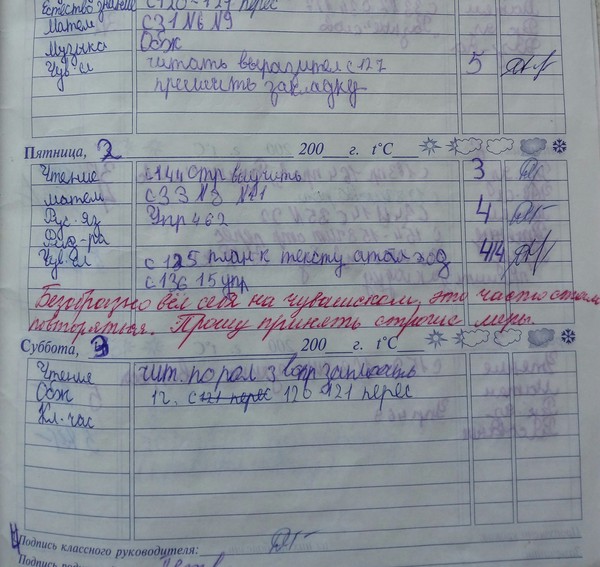 Естествознание с 120 - 121 перес
Матем с 31 № 6 № 9
Музыка Обж
Чув. яз читать выразител с 127 5
пришить закладку
Пятница, 2 200 г. t°C
Чтение с 144 отр выучить 3
матем с 33 № 8 № 11
Рус-яз Упр 462 4
Физ-ра
Чув. яз с 125 план к тексту 4/4
с 136 15 упр
Безобразно вёл себя на чувашском, это часто стало
повторяться. Прошу принять строгие меры.
Суббота, 3 200 г. t°C
Чтение чит. по рол 3
Обж 12. с 121 перес 120 - 121 перес
Кл. час
Подпись классного руководителя: